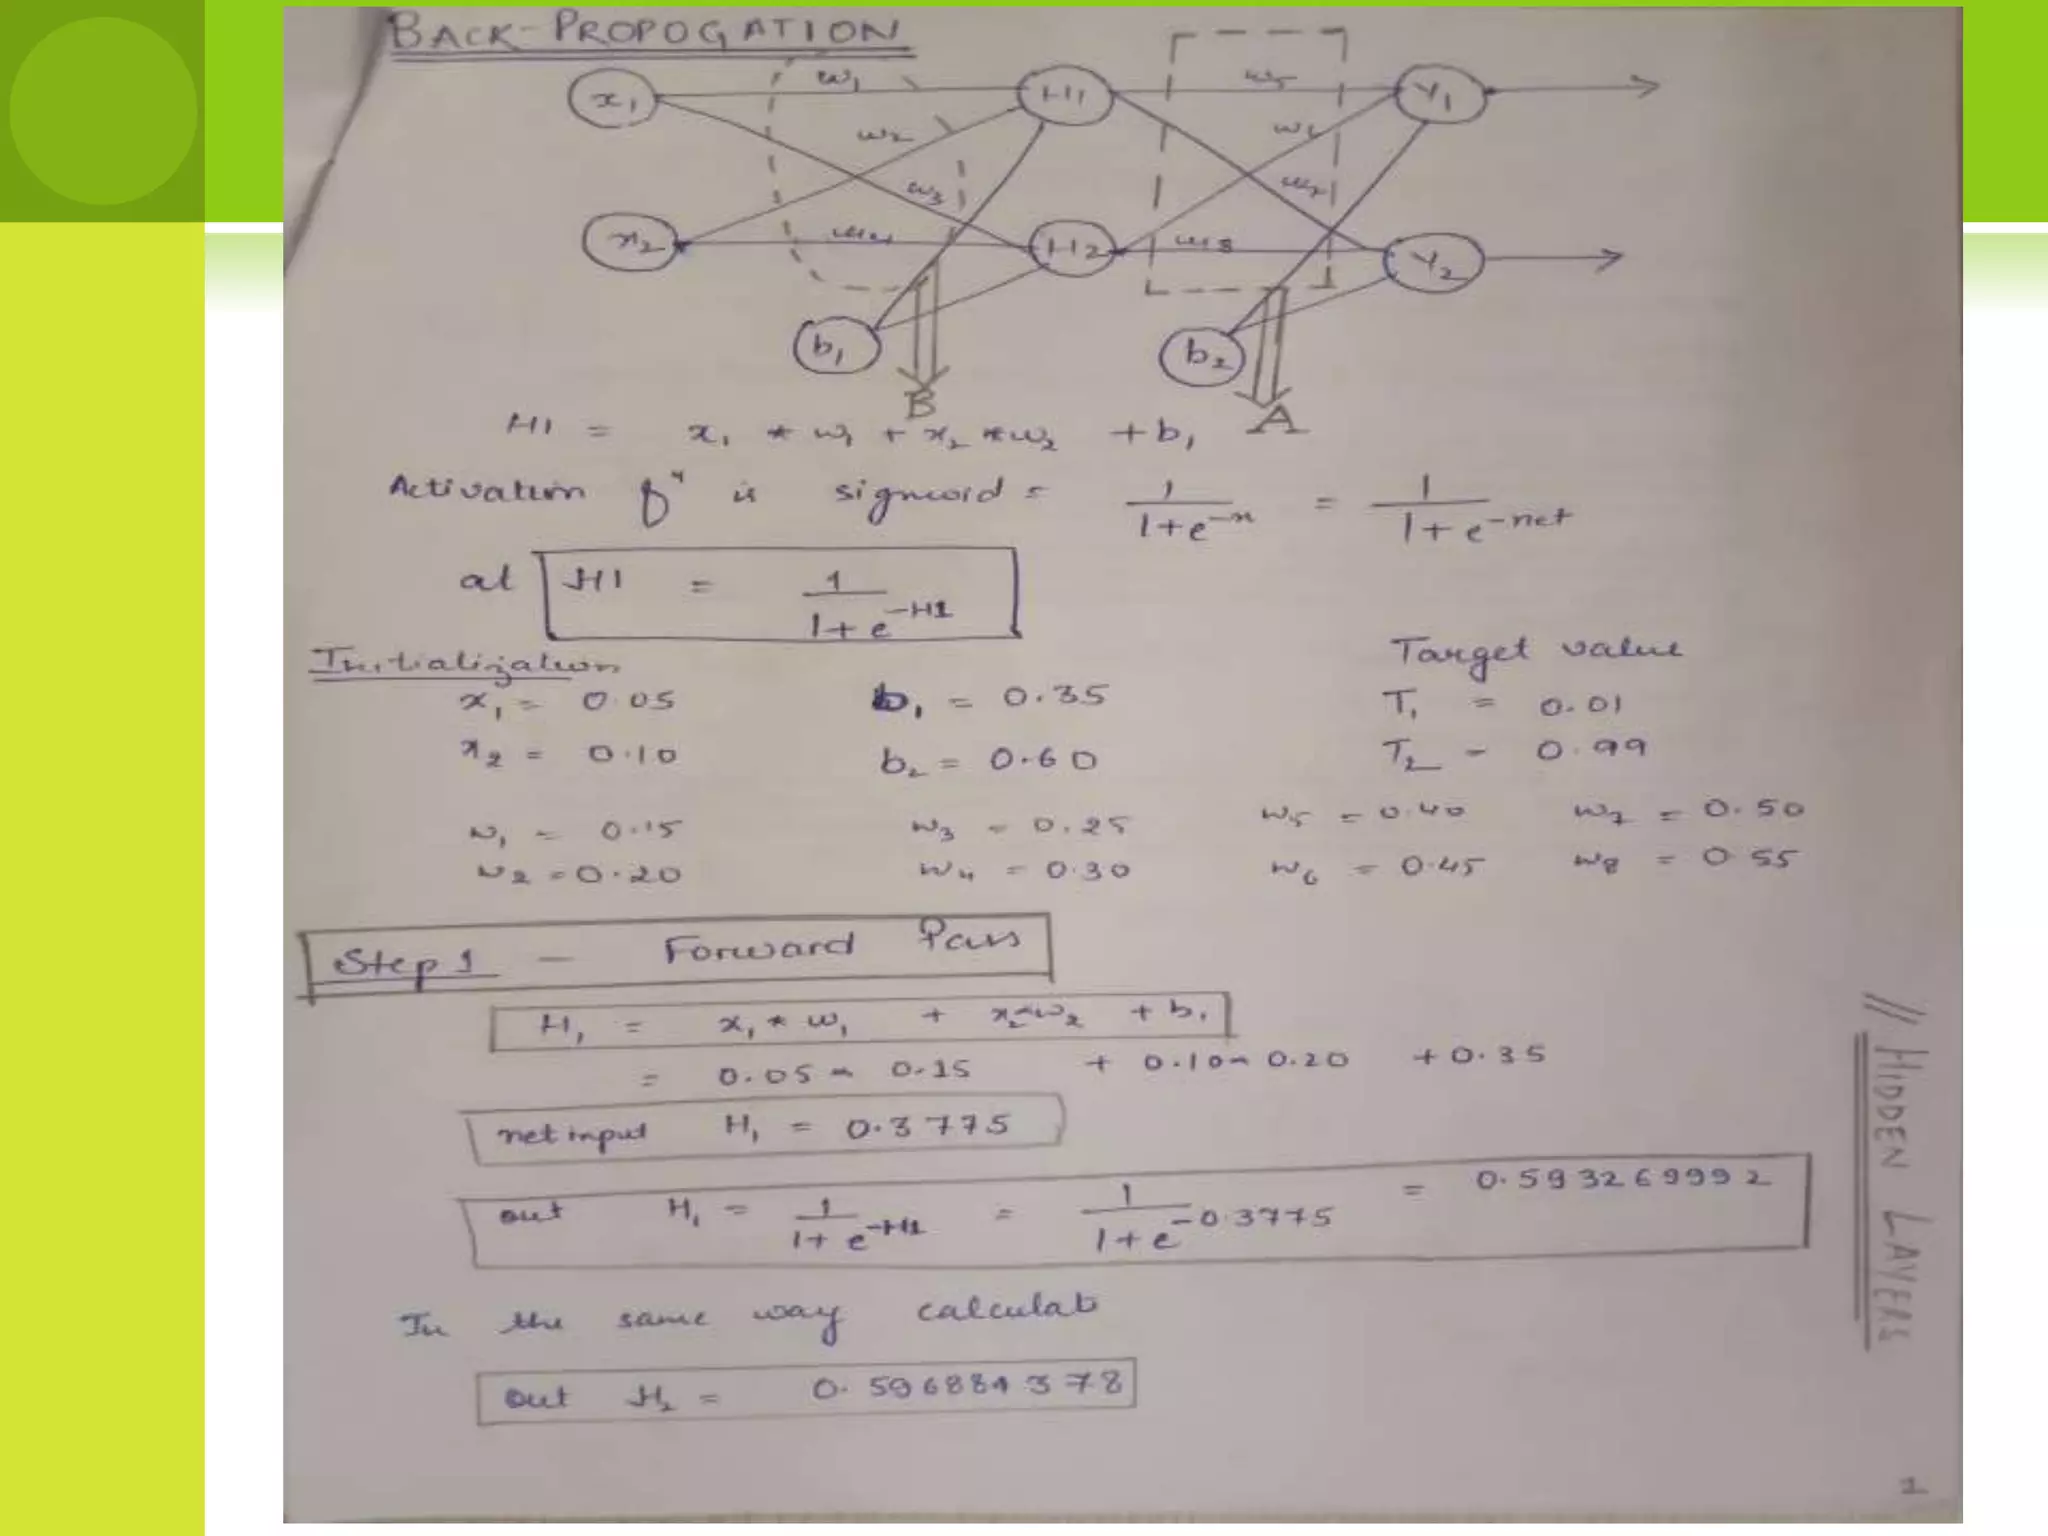 BACK-PROPOGATION
x1 w1 H1 w5 Y1
w2 w6
w3 w7
x2 w4 H2 w8 Y2
b1 b2
B A
H1 = x1 * w1 + x2 * w2 + b1
Activation fⁿ is sigmoid = 1/(1+e^-x) = 1/(1+e^-net)
at H1 = 1/(1+e^-H1)
Initialization Target value
x1 = 0.05 b1 = 0.35 T1 = 0.01
x2 = 0.10 b2 = 0.60 T2 = 0.99
w1 = 0.15 w3 = 0.25 w5 = 0.40 w7 = 0.50
w2 = 0.20 w4 = 0.30 w6 = 0.45 w8 = 0.55
Step 1 - Forward Pass
H1 = x1 * w1 + x2 * w2 + b1
= 0.05 * 0.15 + 0.10 * 0.20 + 0.35
net input H1 = 0.3775
out H1 = 1/(1+e^-H1) = 1/(1+e^-0.3775) = 0.593269992
In the same way calculat
out H2 = 0.596884378
// HIDDEN LAYERS
1